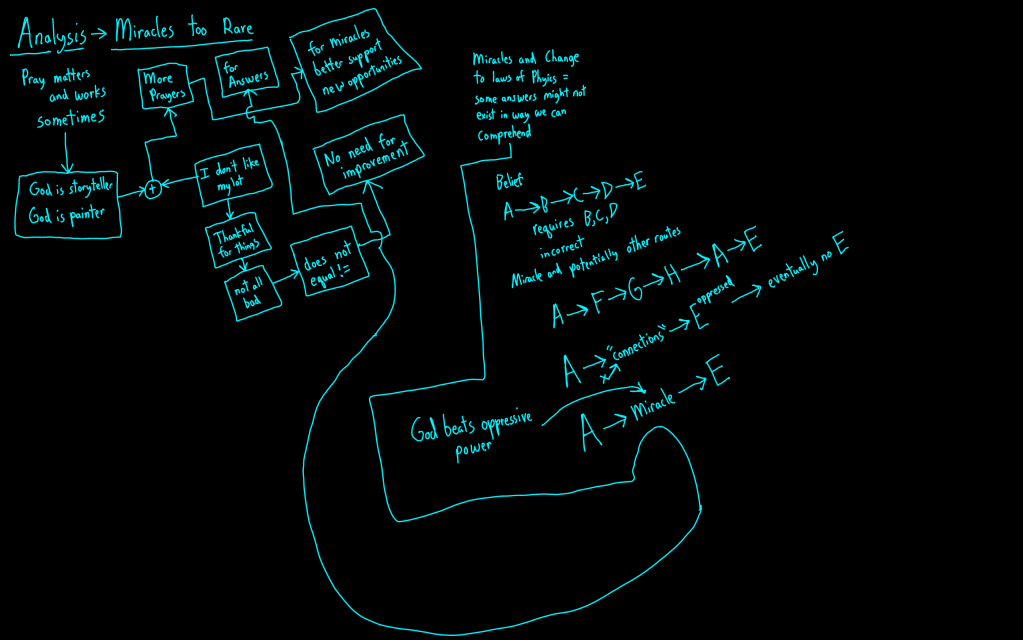 Analysis → Miracles too Rare
Pray matters
and works
sometimes
God is storyteller
God is painter
+
More
Prayers
for
Answers
for miracles
better support
new opportunities
I don't like
my lot
Thankful
for things
not all
bad
does not
equal !=
No need for
improvement
Miracles and Change
to laws of Phyics =
some answers might not
exist in way we can
Comprehend
Belief
A → B → C → D → E
requires B, C, D
incorrect
Miracle and potentially other routes
A → F → G → H → A → E
A → "connections" → E oppressed → eventually no E
x
God beats oppressive
power
A → Miracle → E